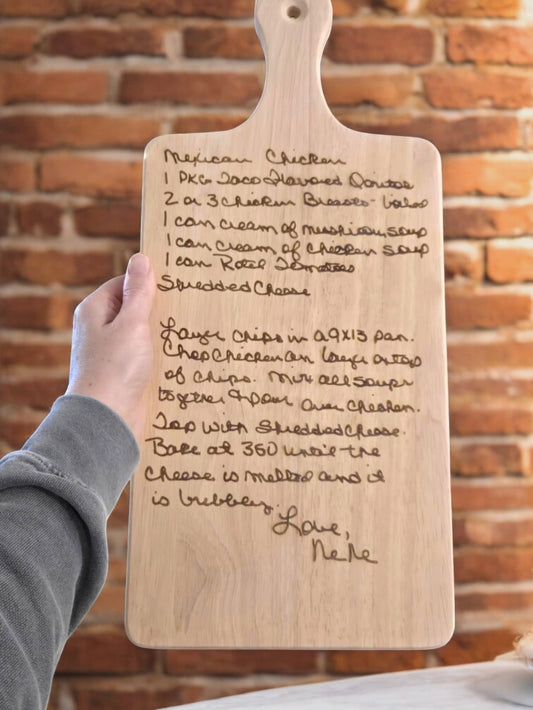 Mexican Chicken
1 PKG Taco Flavored Doritos
2 or 3 Chicken Breasts - boiled
1 can cream of mushroom soup
1 can cream of chicken soup
1 can Rotel Tomatoes
Shredded Cheese
Layer chips in a 9x13 pan.
Chop Chicken and layer on top
of chips. Mix all soups
together & pour over chicken.
Top with shredded cheese.
Bake at 350 until the
cheese is melted and it
is bubbley.
Love,
NeNe